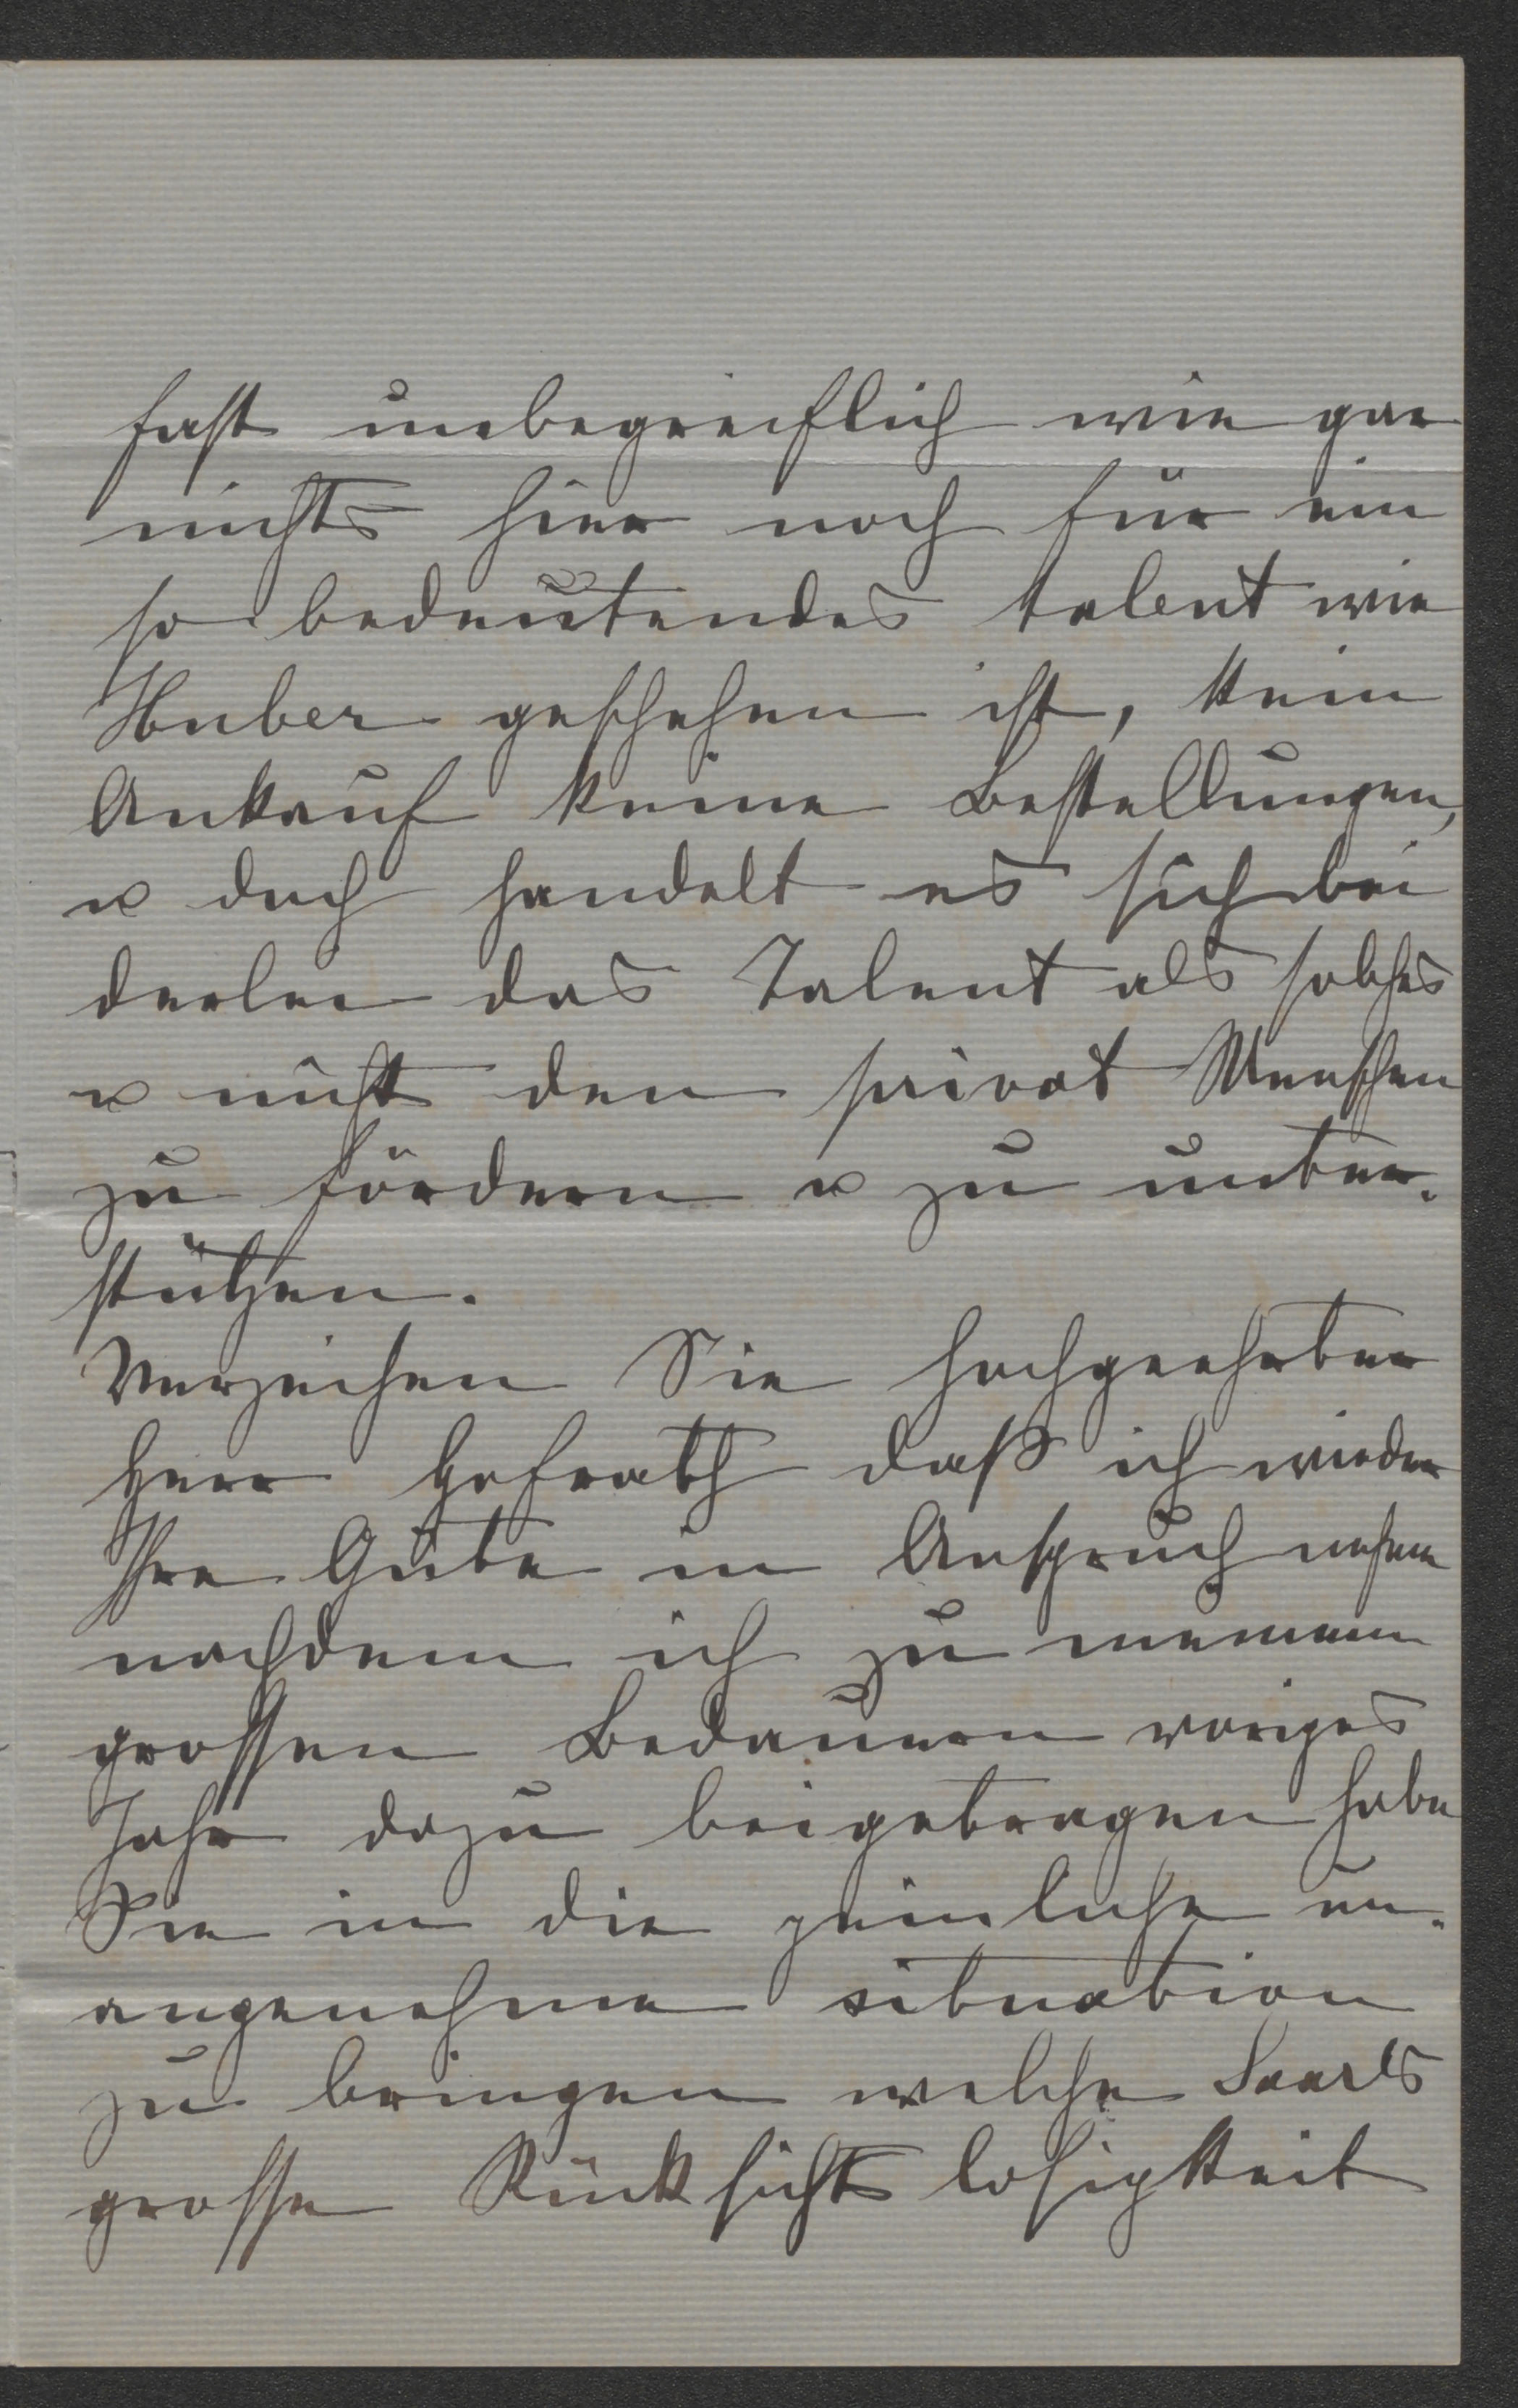 fast unbegreiflich wie gar
nichts hier noch für ein
so bedeutendes talent wie
Huber geschehen ist, kein
Ankauf keine Bestellungen,
u doch handelt es sich bei
derlei das Talent als solches
u nicht den privat Menschen
zu fördern u zu unter-
stützen.
Verzeihen Sie hochgeehrter
Herr Hofrath daß ich wieder
Ihre Güte in Anspruch nehme
nachdem ich zu meinem
grossen Bedauern voriges
Jahr dazu beigetragen habe
Sie in die peinliche un-
angenehme situation
zu bringen welche Saars
grosse Rücksichtslosigkeit